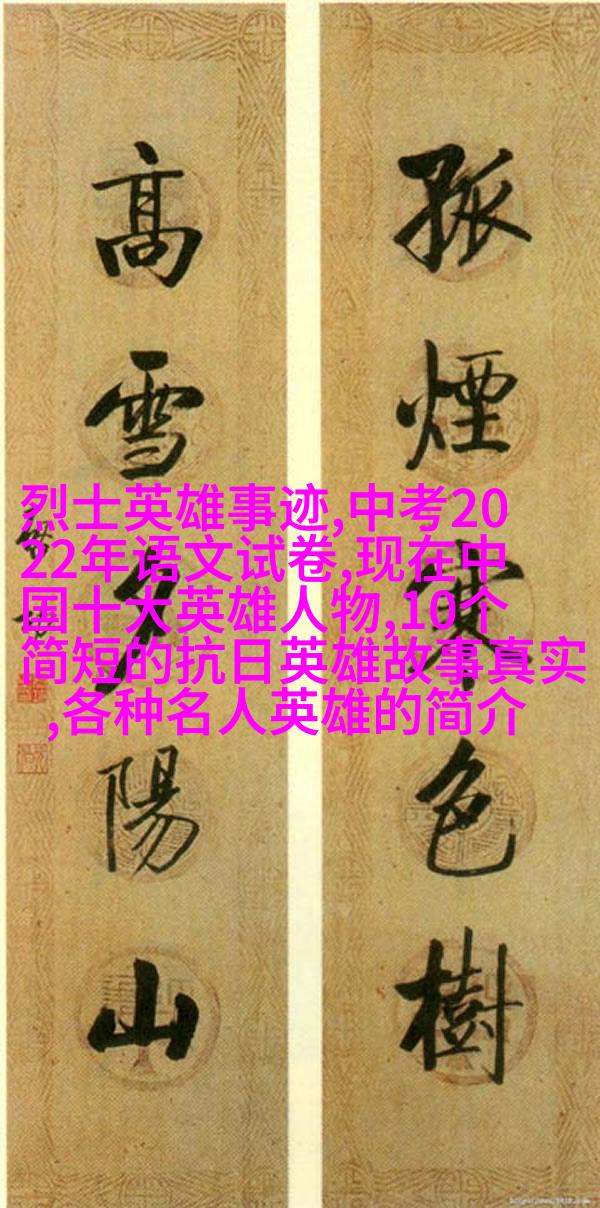 孤煙寒色樹
高雪夕陽山
烈士英雄事迹,中考20
22年语文试卷,现在中
国十大英雄人物,10个
简短的抗日英雄故事真实
,各种名人英雄的简介